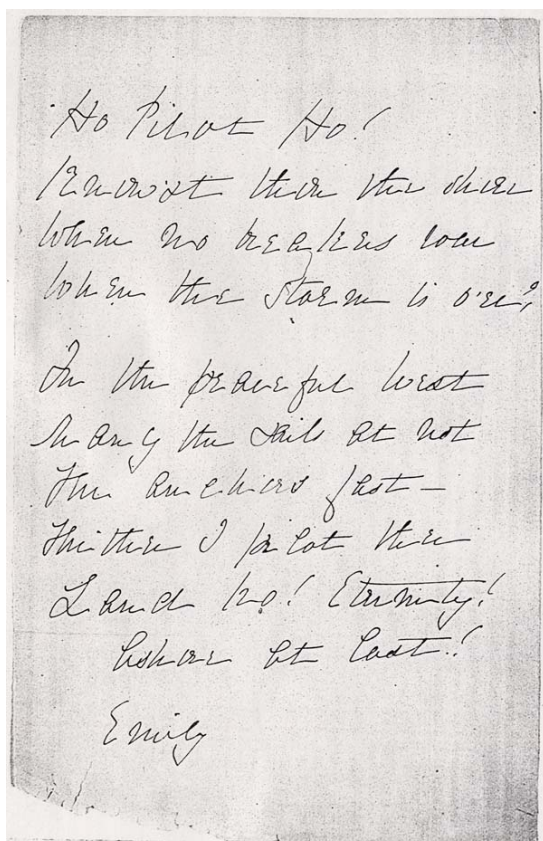 Ho Pilot Ho!
Knowest thou the shore
Where no breakers roar
Where the storm is o'er?
In the peaceful west
Many the sails at rest
The anchors fast —
Thither I pilot thee
Land ho! Eternity!
Ashore at last!
Emily